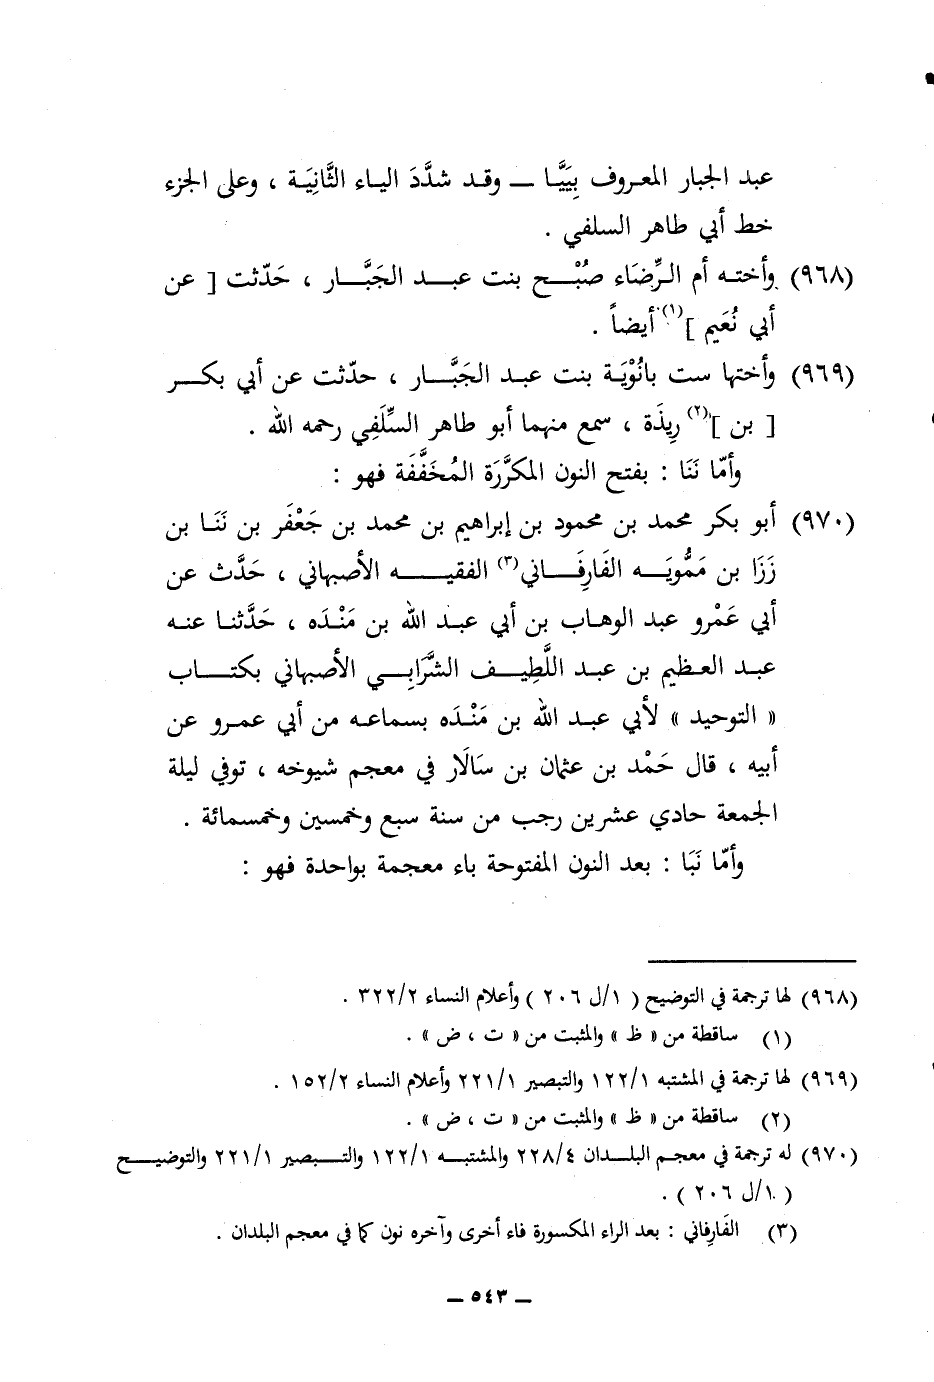 عبد الجبار المعروف بِيَيَّا ــ وقد شدَّدَ الياء الثَّانِيَة ، وعلى الجزء
خط أبي طاهر السلفي .
(٩٦٨) وأخته أم الرِّضَاء صُبْح بنت عبد الجَبَّار ، حَدّثت [ عن
أبي نُعَيم ](١) أيضاً .
(٩٦٩) وأختها ست بانُوْيَة بنت عبد الجَبَّار ، حدّثت عن أبي بكر
[ بن ](٢) رِيذَة ، سمع منهما أبو طاهر السِّلَفِي رحمه الله .
وأمّا نَنَا : بفتح النون المكرَّرَة المُخَفَّفَة فهو :
(٩٧٠) أبو بكر محمد بن محمود بن إبراهيم بن محمد بن جَعْفَر بن نَنَا بن
زَزَا بن مَمُّويَه الفَارِفَاني(٣) الفقيه الأصبهاني ، حَدَّث عن
أبي عَمْرو عبد الوهاب بن أبي عبد الله بن مَنْدَه ، حَدَّثنا عنه
عبد العظيم بن عبد اللَّطِيف الشَّرَابِي الأصبهاني بكتاب
« التوحيد » لأبي عبد الله بن مَنْدَه بسماعه من أبي عمرو عن
أبيه ، قال حَمْد بن عثمان بن سَالَار في معجم شيوخه ، توفي ليلة
الجمعة حادي عشرين رجب من سنة سبع وخمسين وخمسمائة .
وأمّا نَبَا : بعد النون المفتوحة باء معجمة بواحدة فهو :
(٩٦٨) لها ترجمة في التوضيح ( ١/ل ٢٠٦ ) وأعلام النساء ٣٢٢/٢ .
(١) ساقطة من « ظ » والمثبت من « ت ، ض » .
(٩٦٩) لها ترجمة في المشتبه ١٢٢/١ والتبصير ٢٢١/١ وأعلام النساء ١٥٢/٢ .
(٢) ساقطة من « ظ » والمثبت من « ت ، ض » .
(٩٧٠) له ترجمة في معجم البلدان ٢٢٨/٤ والمشتبه ١٢٢/١ والتبصير ٢٢١/١ والتوضيح
( ١/ل ٢٠٦ ) .
(٣) الفَارِفَاني : بعد الراء المكسورة فاء أخرى وآخره نون كما في معجم البلدان .
ــ ٥٤٣ ــ